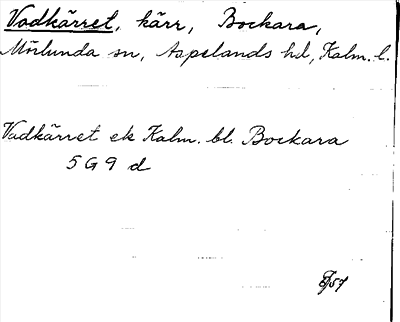 Vadkärret, kärr, Bockara,
Mörlunda sn, Aspelands hd, Kalm. l.
Vadkärret ek Kalm. bl. Bockara
5 G 9 d
57